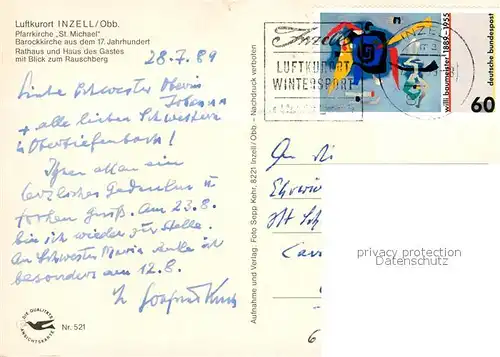 Luftkurort INZELL/Obb.
Pfarrkirche „St. Michael"
Barockkirche aus dem 17. Jahrhundert
Rathaus und Haus des Gastes
mit Blick zum Rauschberg
28.7.89
Liebe Schwester Oberin
Johanna
+ alle lieben Schwestern
in Obertiefenbach!
Ihnen allen ein
herzliches Gedenken u.
frohen Gruß. Am 23.8.
bin ich wieder zur Stelle.
An Schwester Maria
besonders am 12.8.
Nr. 521
DIE QUALITÄTS
ANSICHTSKARTE
Aufnahme und Verlag: Foto Sepp Kehr, 8221 Inzell/Obb. – Nachdruck verboten
Inzell
LUFTKURORT
WINTERSPORT
INZELL
willi baumeister 1889-1955
deutsche bundespost
60
An di
privacy protection
Datenschutz
6